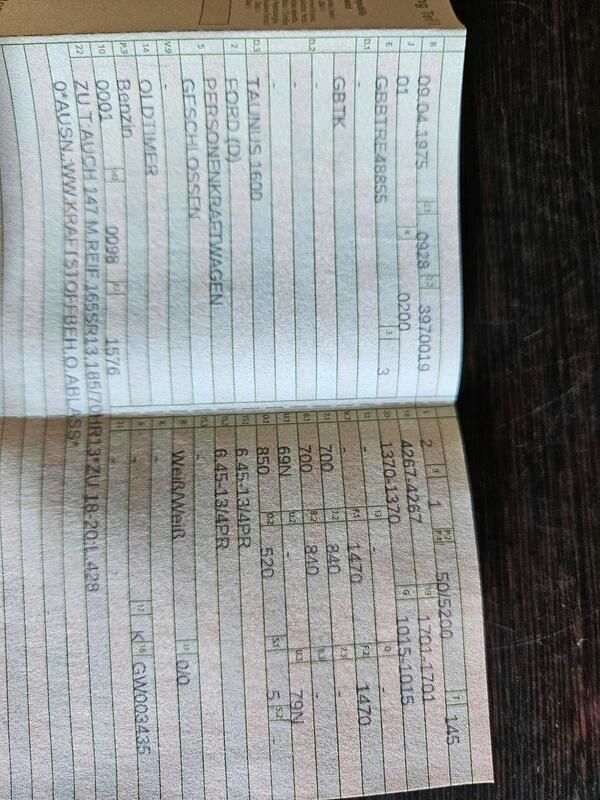 ng Teil
B 09.04.1975 2.1 0928 2.2 3970019
J 01 4 0200
E GBBTRE48855 3 3
D.1 -
GBTK
D.2 -
-
-
D.3 TAUNUS 1600
2 FORD (D)
5 PERSONENKRAFTWAGEN
GESCHLOSSEN
V.9 -
14 OLDTIMER
P.3 Benzin
10 0001 14.1 0098 P.1 1576
22 ZU T:AUCH 147 M.REIF.165SR13,185/70HR13*ZU 18-20:L.428
0*AUSN.:WW.KRAFTSTOFFBEH.O.ABLASS*
L 2 9 1 P.2 P.4 50/5200 T 145
18 4267-4267 19 1701-1701
20 1370-1370 G 1015-1015
12 - 13 - Q -
V.7 - F.1 1470 F.2 1470
7.1 700 7.2 840 7.3 -
8.1 700 8.2 840 8.3 -
U.1 69N U.2 - U.3 79N
O.1 850 O.2 520 S.1 5 S.2 -
15.1 6.45-13/4PR
15.2 6.45-13/4PR
15.3 -
R Weiß/Weiß 11 0/0
K -
6 - 17 K 16 GW003435
21 -